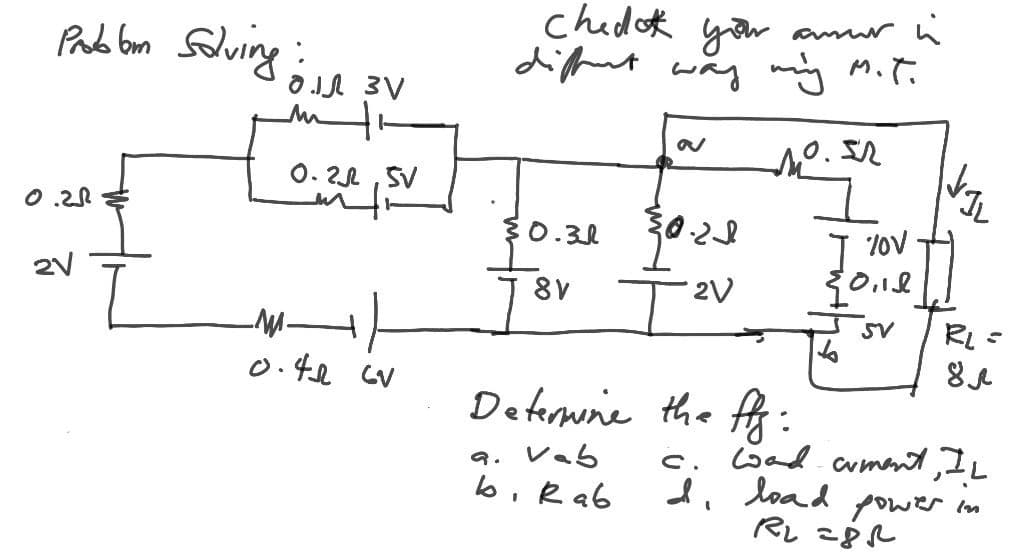 Problem Solving:
Check your answer in
different way using M.T.
0.1Ω 3V
a
0.5Ω
0.2Ω 5V
0.2Ω
IL
0.3Ω
0.2Ω
10V
2V
0.1Ω
8V
2V
5V
RL =
b
8Ω
0.4Ω 6V
Determine the ffg:
a. Vab
c. Load current, IL
b. Rab
d. load power in
RL = 8Ω